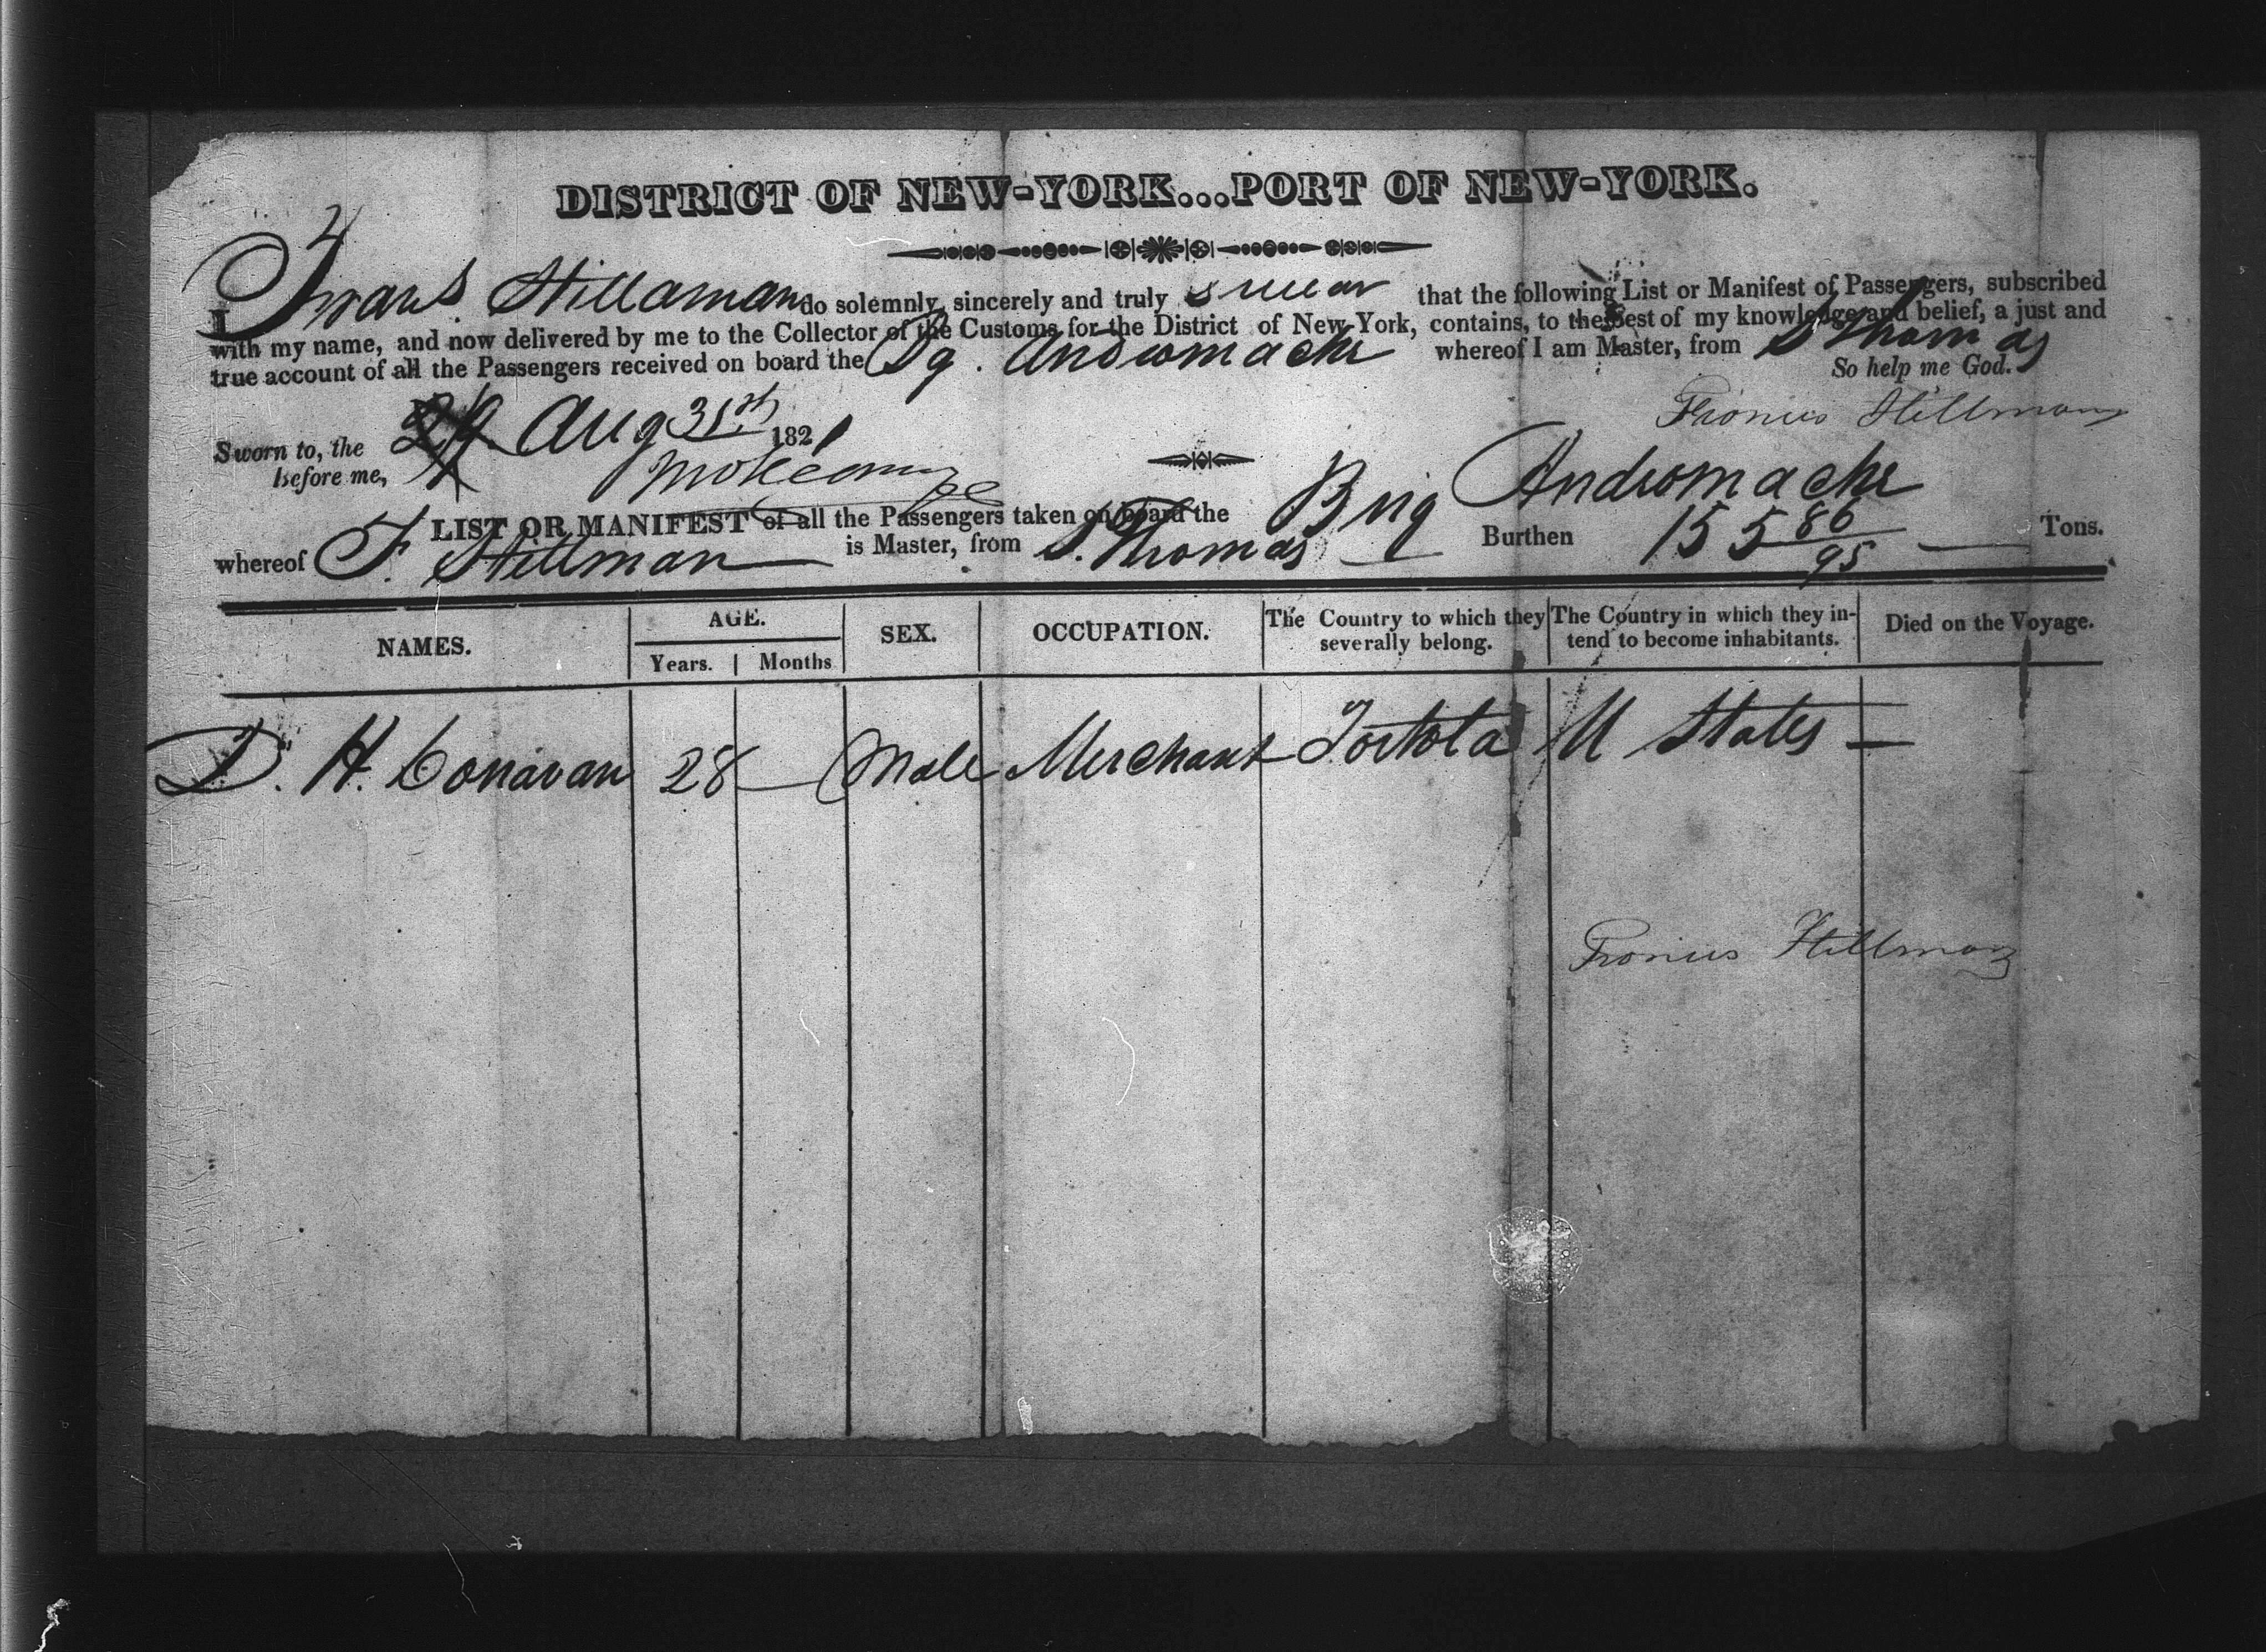 DISTRICT OF NEW-YORK...PORT OF NEW-YORK.
I Frans. Hillaman do solemnly, sincerely and truly swear that the following List or Manifest of Passengers, subscribed
with my name, and now delivered by me to the Collector of the Customs for the District of New York, contains, to the best of my knowledge and belief, a just and
true account of all the Passengers received on board the Bg. Andromache whereof I am Master, from S Thomas
So help me God.
Hillman
Sworn to, the Aug 31st 1821
before me,
LIST OR MANIFEST of all the Passengers taken on board the Brig Andromache
whereof F. Hillman is Master, from S. Thomas Burthen 155 86/95 Tons.
NAMES. AGE. Years. Months SEX. OCCUPATION. The Country to which they severally belong. The Country in which they intend to become inhabitants. Died on the Voyage.
D. H. Conavan 28 — Male Merchant Tortola U States —
Hillman